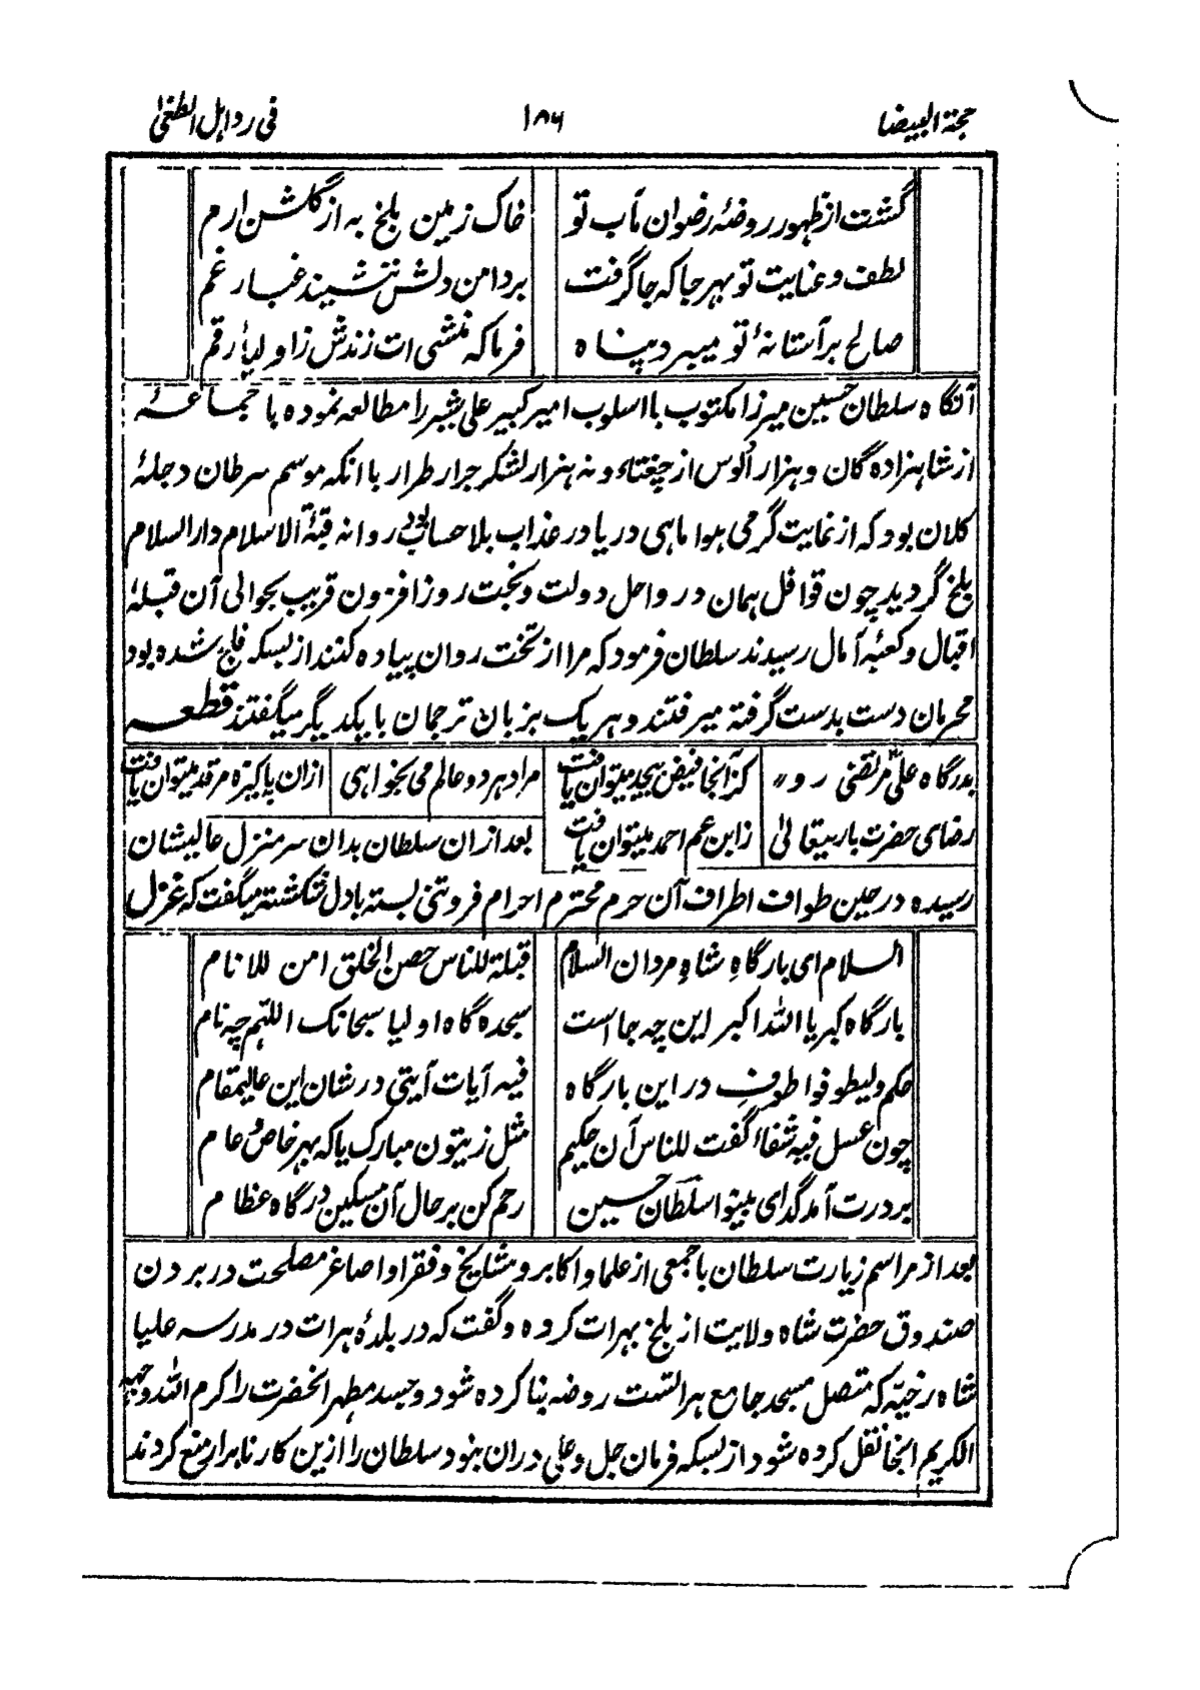 حجة البیضا ۱۸۶ فی رد اہل الطغیٰ
گشت از ظهور روضۂ رضوان مآب تو خاک زمین بلخ به از گلشن ارم
لطف و عنایت تو بهر جا که جا گرفت بر دامن دلش ننشیند غبار غم
صالح بر آستانۂ تو میبرد پناه فرما که منشی ات زندش ز اولیأ رقم
آنگاه سلطان حسین میرزا مکتوب با اسلوب امیر کبیر علی شیر را مطالعه نموده با جماعۂ
از شاہزاده گان و هزار اُلوس از چغتاء و نه هزار لشکر جرار طرار با انکه موسم سرطان دجلۂ
کلان بود که از غایت گرمی هوا ماهی دریا در عذاب بلا حساب بود روانه قبۂ الاسلام دار السلام
بلخ گردید چون قوافل همان در رواحل دولت و بخت روز افزون قریب بحوالی آن قبلۂ
اقبال و کعبۂ آمال رسیدند سلطان فرمود که مرا از تخت روان پیاده کنند از بسکه فلج شده بود
محرمان دست بدست گرفته میرفتند و هر یک بزبان ترجمان با یکدیگر میگفتند قطعه
بدرگاه علیؓ مرتضی رو ،، کز آنجا فیض بیحد میتوان یافت مراد هر دو عالم می بخواهی ازان پاکیزه مرقد میتوان یافت
رضای حضرت باریتعالیٰ ز ابن عم احمد میتوان یافت بعد ازان سلطان بدان سر منزل عالیشان
رسیده در حین طواف اطراف آن حرم محترم احرام فروتنی بسته بادل شکسته میگفت که غزل
السلام ای بارگاهِ شاهِ مردان السلام قبلة للناس حصن الخلق امن للانام
بارگاه کبریا الله اکبر این چه جا است سجده گاه اولیا سبحانک اللّهم چه نام
حکم ولیطوفوا طوفِ در این بارگاه فیه آیات آیتی در شان این عالیمقام
چون عسل فیه شفاءٌ گفت للناس آن حکیم مثل زیتون مبارک یا که بهر خاص و عام
بر درت آمد گدای بینوا سلطان حسین رحم کن بر حال آن مسکین درگاه عظام
بعد از مراسم زیارت سلطان با جمعی از علما و اکابر و مشایخ و فقرا و اصاغر مصلحت در بردن
صندوق حضرت شاه ولایت از بلخ بهرات کرده و گفت که در بلدۂ هرات در مدرسه علیا
شاه رخیّه که متصل مسجد جامع هرالتست روضه بنا کرده شود و جسد مطهر انحضرت را کرم الله وجهه
الکریم انجا نقل کرده شود از بسکه فرمان جل و علی دران بنود سلطان را ازین کار نابرار منع کردند